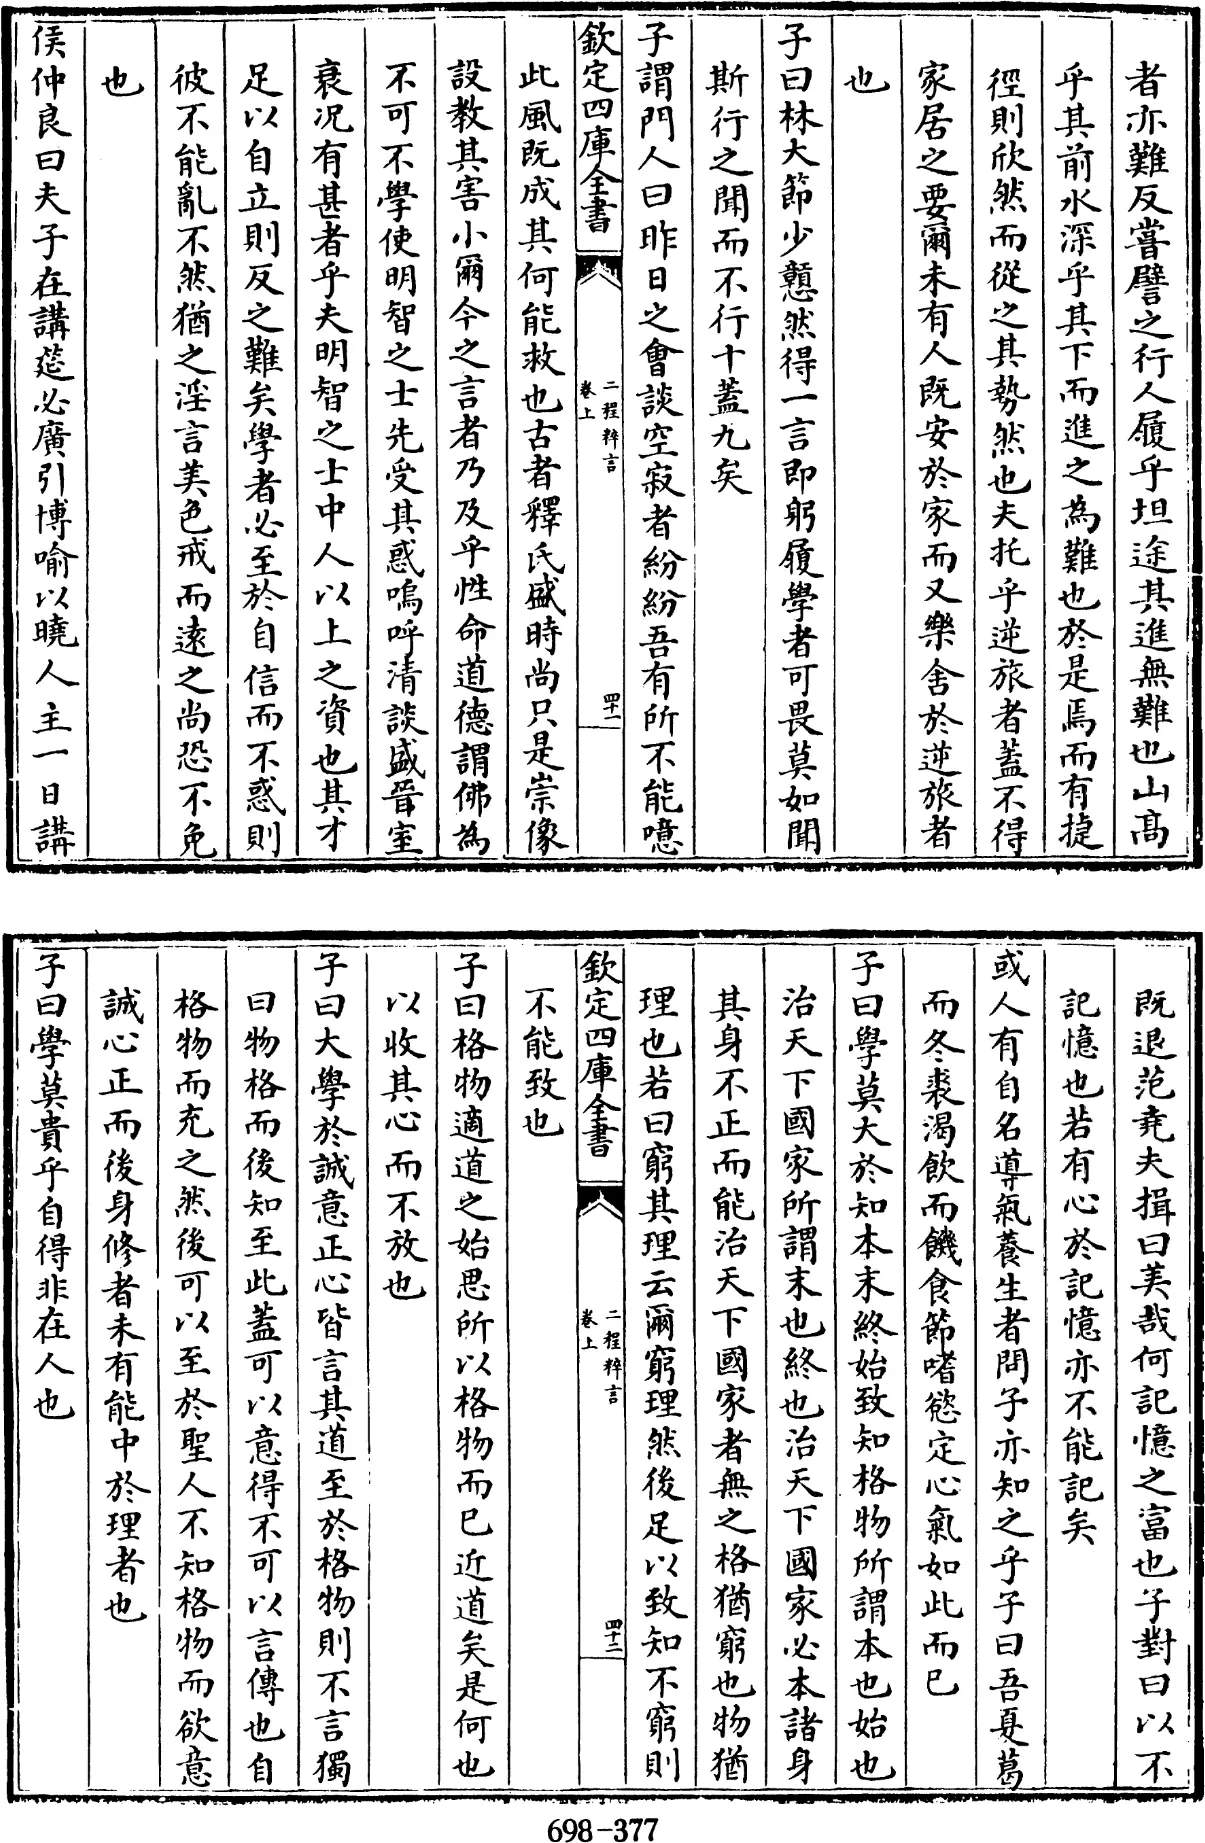 者亦難反嘗譬之行人履乎坦途其進無難也山高
乎其前水深乎其下而進之為難也於是焉而有捷
徑則欣然而從之其勢然也夫托乎逆旅者蓋不得
家居之要爾未有人既安於家而又樂舍於逆旅者
也
子曰林大節少戇然得一言即躬履學者可畏莫如聞
斯行之聞而不行十蓋九矣
子謂門人曰昨日之會談空寂者紛紛吾有所不能噫
欽定四庫全書
二程粹言
卷上
四十一
此風既成其何能救也古者釋氏盛時尚只是崇像
設教其害小爾今之言者乃及乎性命道德謂佛為
不可不學使明智之士先受其惑嗚呼清談盛晉室
衰況有甚者乎夫明智之士中人以上之資也其才
足以自立則反之難矣學者必至於自信而不惑則
彼不能亂不然猶之淫言美色戒而遠之尚恐不免
也
侯仲良曰夫子在講筵必廣引博喻以曉人主一日講
既退范堯夫揖曰美哉何記憶之富也子對曰以不
記憶也若有心於記憶亦不能記矣
或人有自名導氣養生者問子亦知之乎子曰吾夏葛
而冬裘渴飲而饑食節嗜慾定心氣如此而已
子曰學莫大於知本末終始致知格物所謂本也始也
治天下國家所謂末也終也治天下國家必本諸身
其身不正而能治天下國家者無之格猶窮也物猶
理也若曰窮其理云爾窮理然後足以致知不窮則
欽定四庫全書
二程粹言
卷上
四十二
不能致也
子曰格物適道之始思所以格物而已近道矣是何也
以收其心而不放也
子曰大學於誠意正心皆言其道至於格物則不言獨
曰物格而後知至此蓋可以意得不可以言傳也自
格物而充之然後可以至於聖人不知格物而欲意
誠心正而後身修者未有能中於理者也
子曰學莫貴乎自得非在人也
698-377